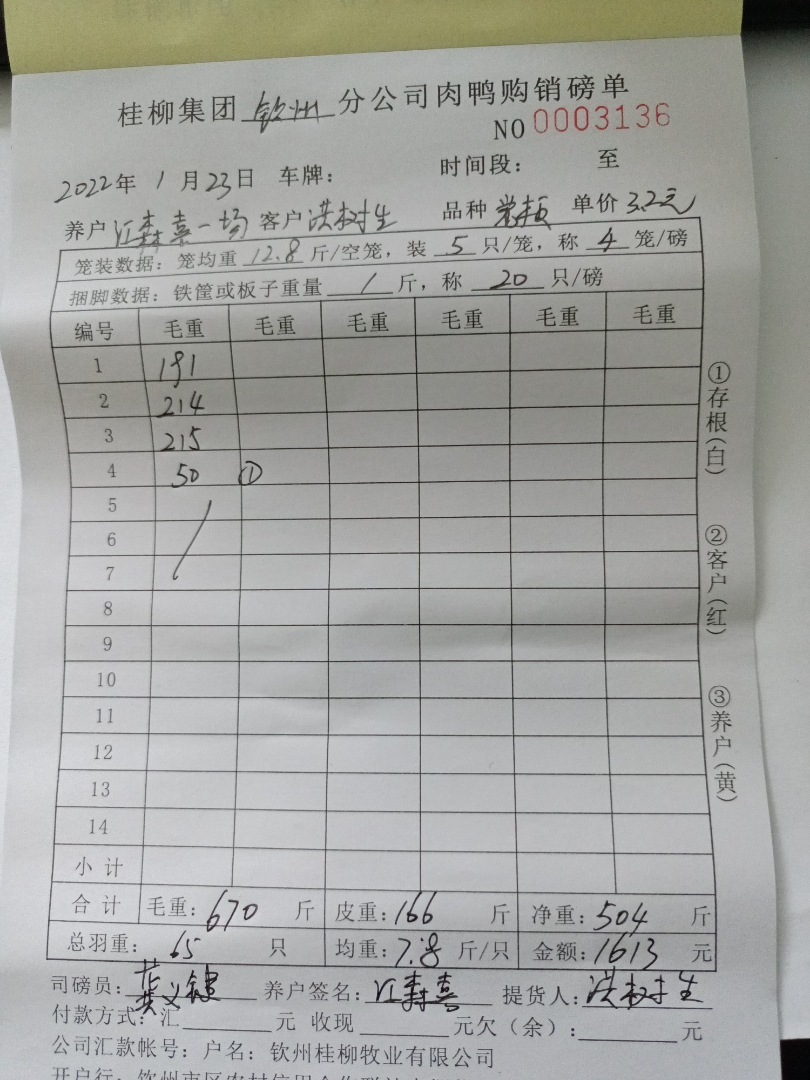 桂柳集团 钦州 分公司肉鸭购销磅单
NO 0003136
2022年 1 月 23日 车牌： 时间段： 至
养户 江森喜一场 客户 洪树生 品种 单价 3.2元
笼装数据：笼均重 12.8 斤/空笼，装 5 只/笼，称 4 笼/磅
捆脚数据：铁筐或板子重量 1 斤，称 20 只/磅
编号 毛重 毛重 毛重 毛重 毛重 毛重
1 191
2 214
3 215
4 50 ①
5
6
7
8
9
10
11
12
13
14
小计
合计 毛重：670 斤 皮重：166 斤 净重：504 斤
总羽重： 65 只 均重：7.8 斤/只 金额：1613 元
司磅员：黄义键 养户签名：江森喜 提货人：洪树生
付款方式：汇 元 收现 元欠（余）： 元
公司汇款帐号：户名：钦州桂柳牧业有限公司
开户行：钦州市区农村信用合作联社
①存根（白）
②客户（红）
③养户（黄）